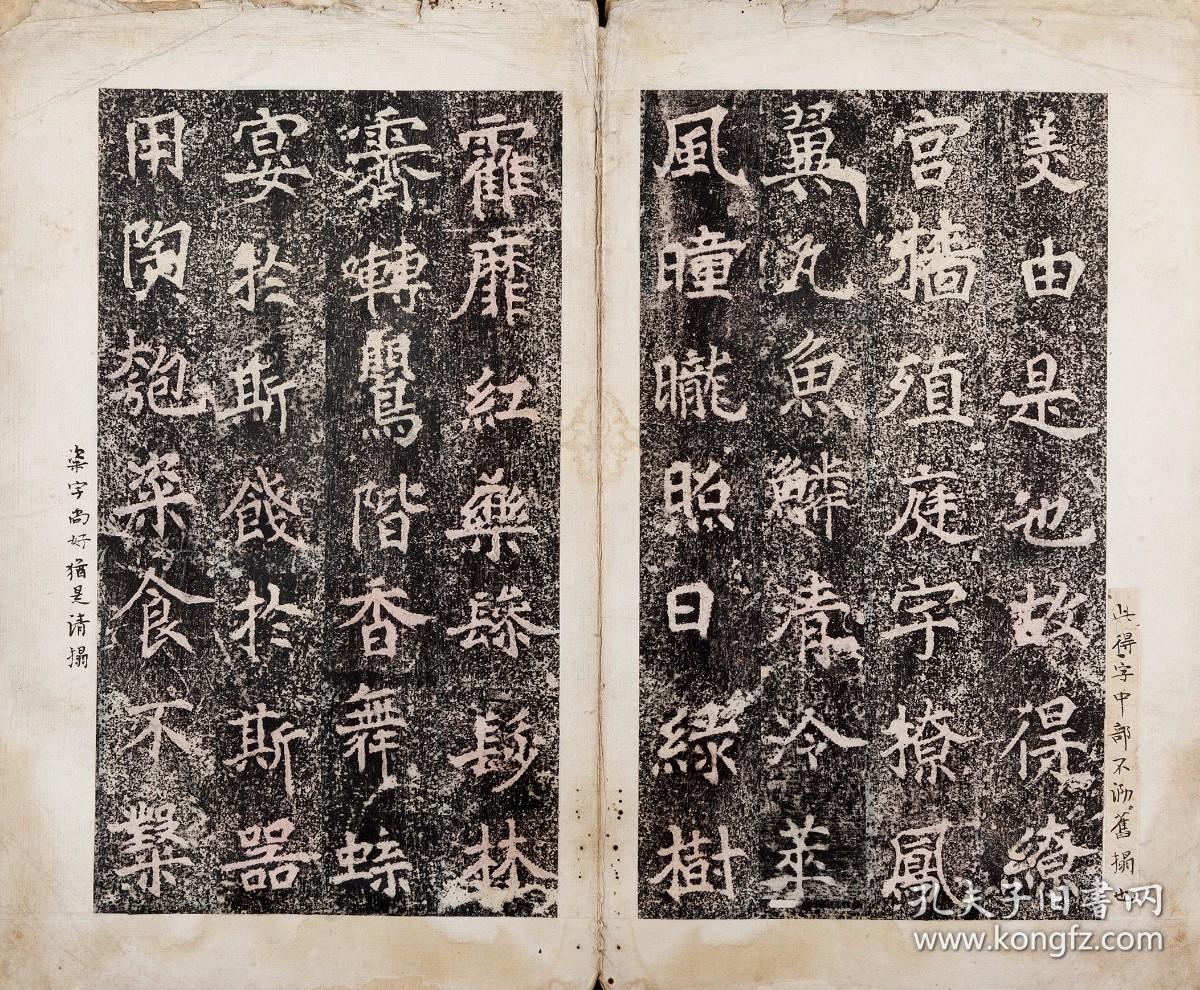 美由是也故得繚
宮牆殖庭宇撩鳳
翼汎魚鱗青冷葉
風曈曨照日綠樹
靃靡紅藥髿林
霽囀鸎階香舞
宴於斯餞於斯器
用陶匏粢食不鑿
此得字中部不泐舊搨也
粢字尚好猶是清搨
孔夫子旧书网
www.kongfz.com